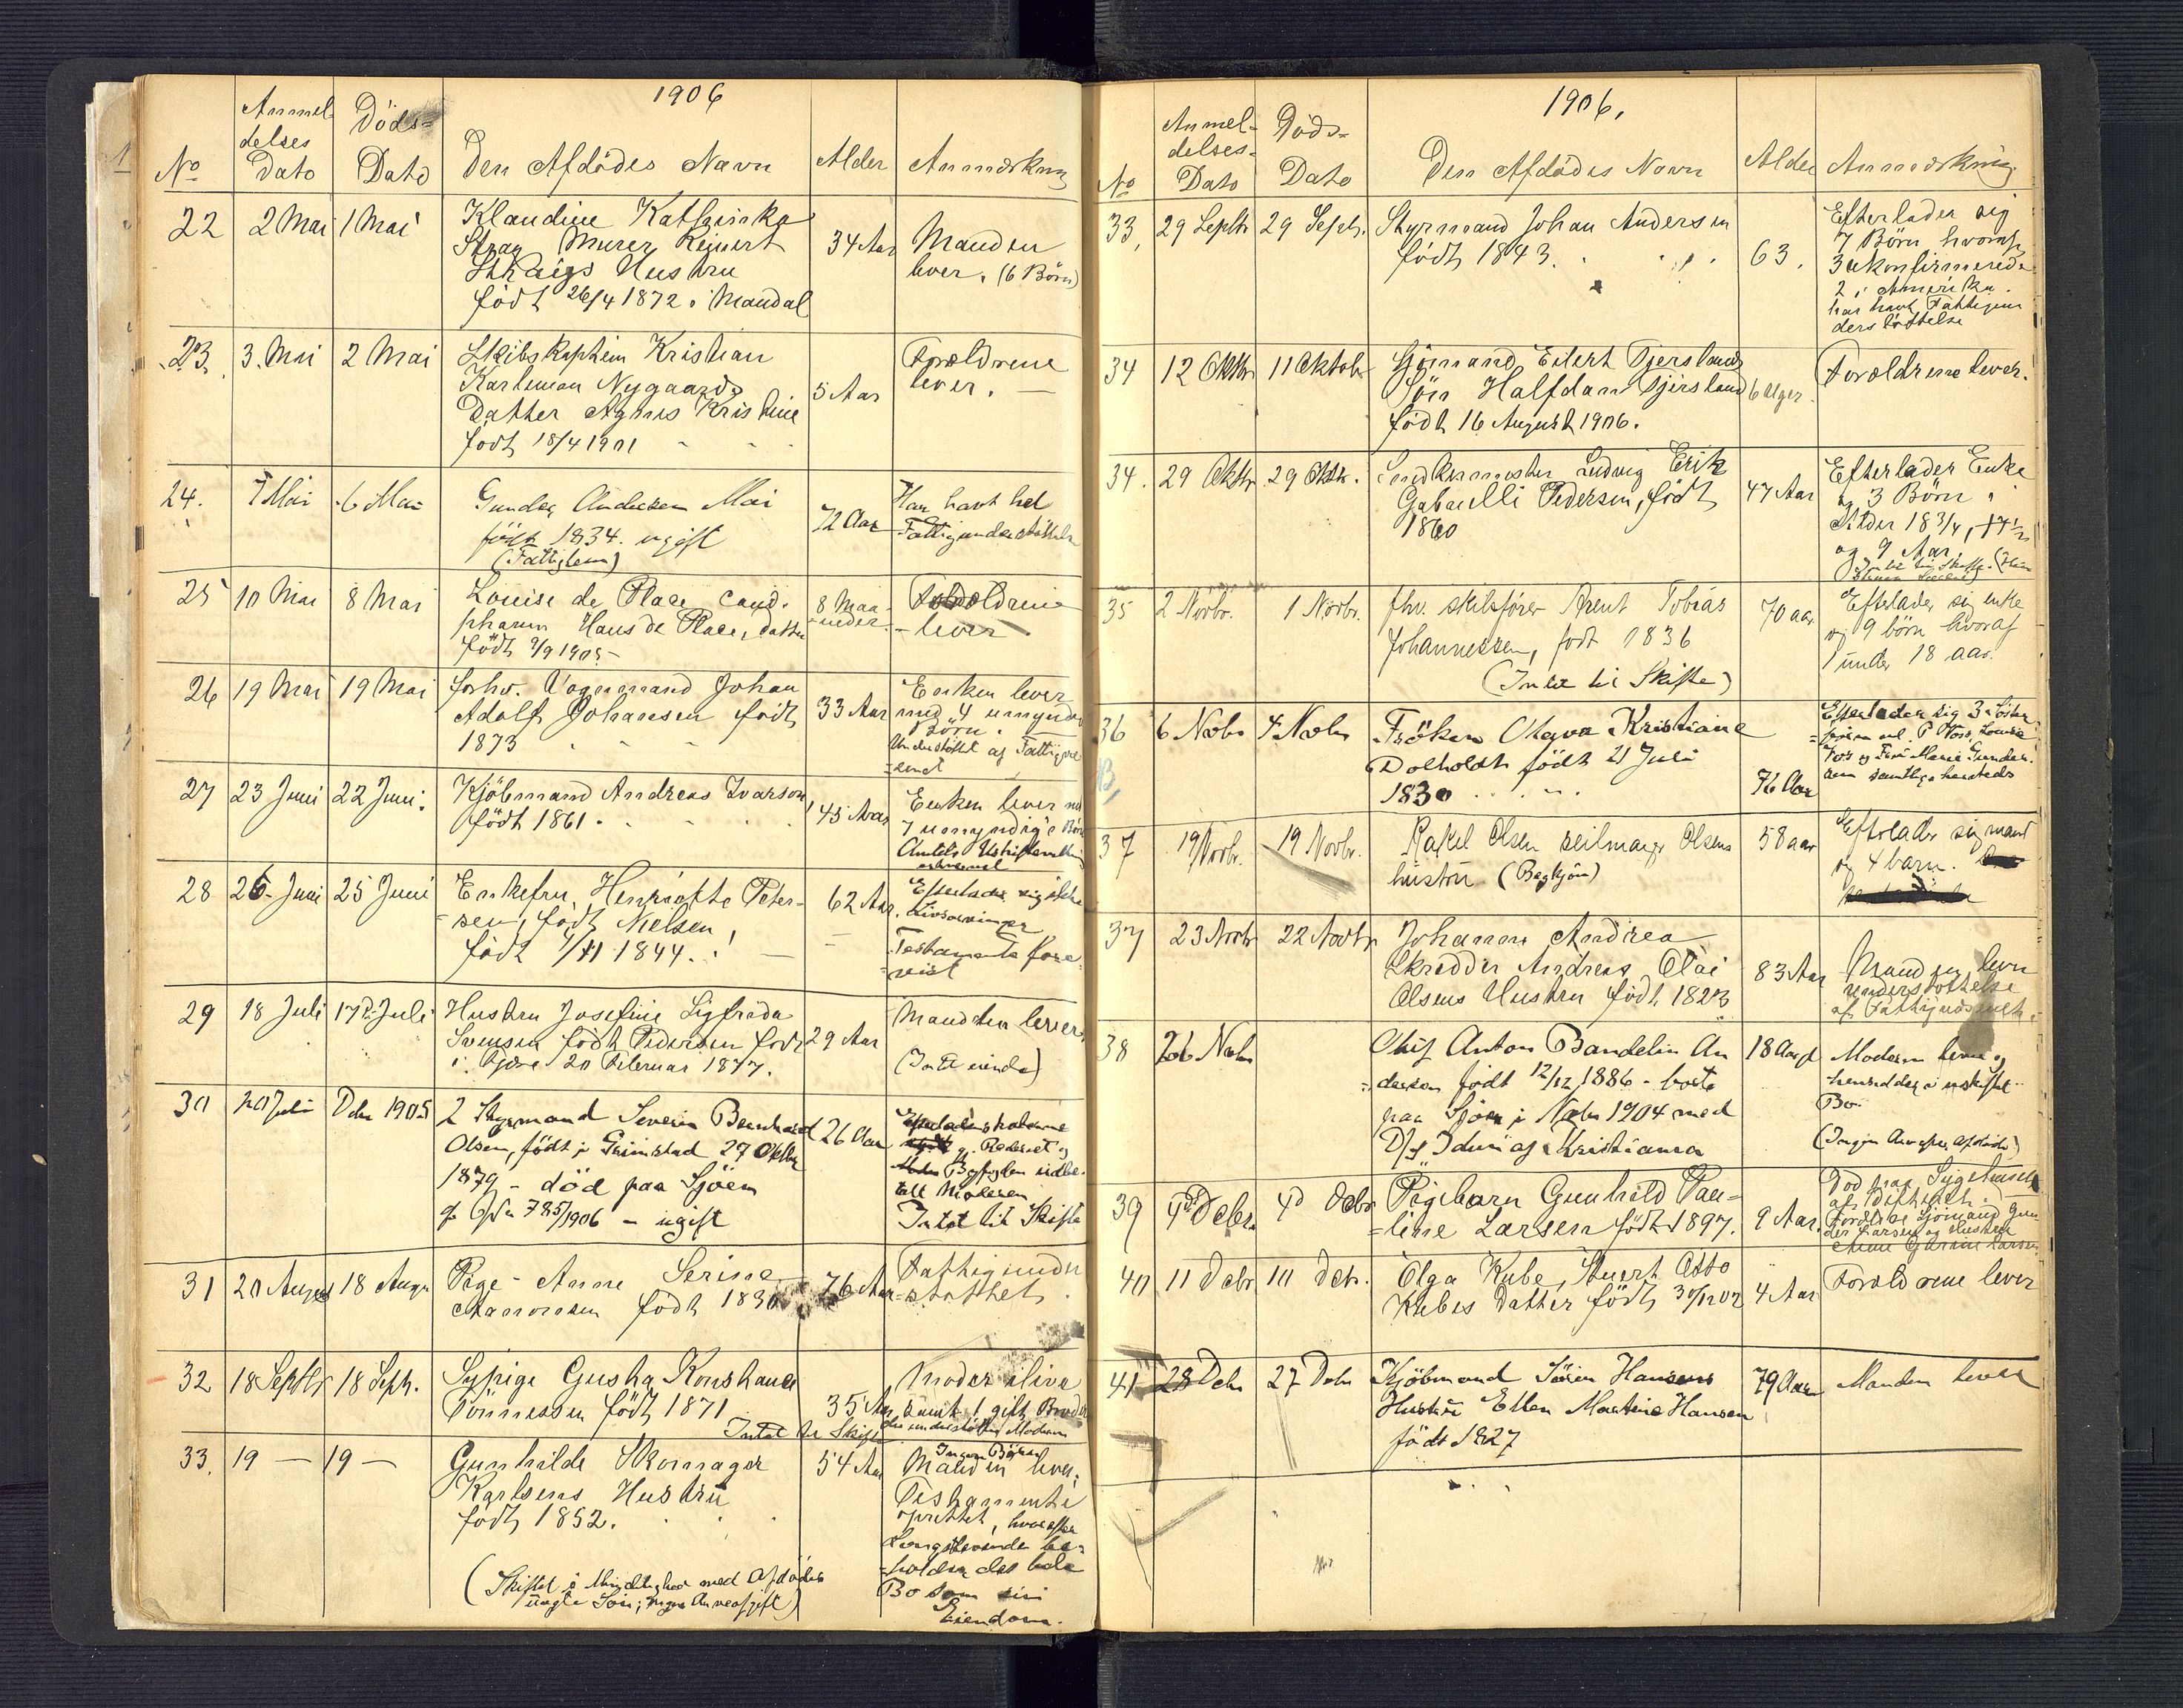 1906
No
Anmel-
delses
Dato
Döds-
Dato
Den Afdödes Navn
Alder
Anmærkning
22
2 Mai
1 Mai
Klaudine Kathinka
Stray Murer Reinert
Hustru
født 26/4 1872 i Mandal
34 Aar
Manden
lever. (6 Børn)
23.
3. Mai
2 Mai
Skibskaptein Kristian
Karleman Nygaards
Datter Agnes Kristine
født 18/4 1901
5 Aar
Forældrene
lever. —
24.
7 Mai
6 Mai
Gunder Andersen Moi
født 1834. ugift
(Fattiglem)
72 Aar
Har havt hel
Fattigunderstøttelse
25
10 Mai
8 Mai
Louise de Place cand.
pharm Hans de Place, datter
født 9/9 1905 -
8 Maa-
neder.
Forældrene
lever
26
19 Mai
19 Mai
forhv. Vognmand Johan
Adolf Johansen født
1873
33 Aar
Enken lever
med 4 umyndige
Børn.
Understøttet af Fattigvæ-
senet
27
23 Juni
22 Juni.
Kjöbmand Andreas Ivarson
født 1861.
45 Aar
Enken lever med
7 umyndige Børn
28
26. Juni
25 Juni
Enkefru Henriette Peter-
sen, født Nielsen,
født 4/11 1844.
62 Aar
Efterlader sig ikke
Livsarvinger
Testamente fore-
vist
29
18 Juli
17de Juli
Hustru Josefine Sigfrida
Svensen født Pedersen født
i 20 Februar 1877.
29 Aar
Manden lever
(Intet eiende)
30
20 Juli
Debr 1905
2 Styrmand Severin Bernhard
Olsen, født i Grimstad 27 Oktbr
1879 - död paa Sjöen
785/1906 - ugift
26 Aar
Rederiet og
Intet til Skifte
31
20 August
18 Augu
Pige - Anne Serine
født 1830
76 Aar
Fattigunder-
støttet.
32
18 Septbr
18 Septr.
Sypige Gusta Konstance
Tönnessen født 1871
Intet til Skifte
35 Aar
Moder ilive
samt 1 gift Broder
der understøtter Moderen
33.
19 —
19 —
Gunhilde Skomager
Karlsens Hustru
født 1852.
(Skiftet i Mindelighed med Afdödes
uægte Sön; ingen Arveafgift)
54 Aar
Ingen Börn
Manden lever;
Testamente
oprettet, hvorefter
Længstlevende be-
holder det hele
Bo som sin
Eiendom.
1906.
No
Anmel-
delses-
Dato
Döds-
Dato
Den Afdödes Navn
Alder
Anmærkning
33.
29 Septbr
29 Septr.
Styrmand Johan Andersen
født 1843.
63.
Efterlader sig
7 Börn hvoraf
3 ukonfirmerede
2 i Amerika.
har havt Fattigun-
derstøttelse
34
12 Oktbr
11 Oktobr
Sjömand Eilert Tjerslands
Sön Halfdan Tjersland
født 16 August 1906.
6 Uger
Forældrene lever.
34.
29 Oktbr
29 Oktbr.
Ludvig Erik
Gabrielli Pedersen, født
1860
47 Aar
Efterlader Enke
og 3 Börn i
Alder 18 3/4, 17 1/2
og 9 Aar.
35
2 Novbr.
1 Novbr.
fhv. skibsfører Arent Tobias
Johannessen, født 1836
(Intet til Skifte)
70 aar
Efterlader sig enke
og 9 börn hvoraf
1 under 18 aar.
36
6 Novbr
4 Novbr
Fröken Olava Kristiane
Dolholdt født 21 Juli
1830
76 Aar
Efterlader sig 3 Söster-
Voss, Louise
Voss og Fru Marie Gunder-
sen samtlige herstedes
B,
37
19 Novbr.
19 Novbr.
Rakel Olsen seilmager Olsens
hustru (Bergkjøn)
58 aar
Efterlader sig mand
og 4 barn.
37
23 Novbr
22 Novbr
Johanne Andrea
Skrædder Andreas Olai
Olsens Hustru født 1823
83 Aar
Manden lever
understøttelse
af Fattigvæsenet.
38
26 Nobr
Olaf Anton Bandelin An-
dersen født 12/12 1886 - borte
paa Sjöen i Nobr 1904 med
D/S Idun af Kristiania
18 Aar
Moderen lever og
hensidder i uskiftet
Bo.
(Ingen Arveafgift)
39
4de Debr.
4d Debr
Pigebarn Gunhild Pau-
line Larsen født 1897.
9 Aar.
Död paa Sygehuset
af Difterit.
Forældre Sjömand Gun-
der Larsen og Hustru
40
11 Debr
10 Debr.
Olga Kube, Stuert Otto
Kubes Datter født 30/12 02
4 Aar
Forældrene lever
41
28 Debr
27 Debr
Kjöbmand Sören Hansens
Hustru Ellen Martine Hansen
født 1827
79 Aar
Manden lever